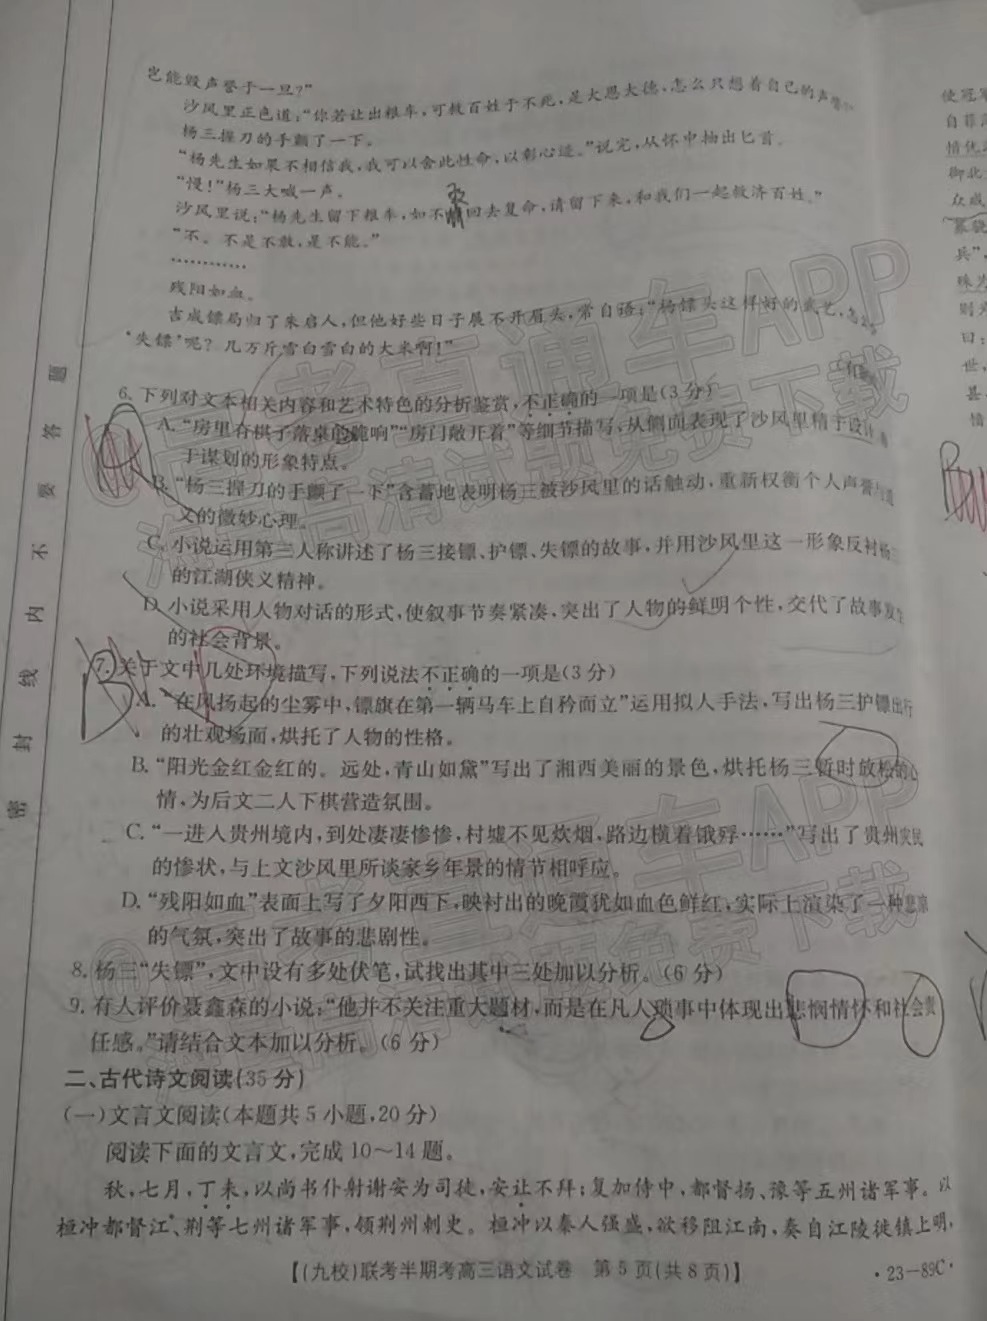 岂能毁声誉于一旦？”
沙风里正色道：“你若让出粮车，可救百姓于不死，是大恩大德，怎么只想着自己的声誉
杨三握刀的手颤了一下。
“杨先生如果不相信我，我可以舍此性命，以彰心迹。”说完，从怀中抽出匕首。
“慢！”杨三大喊一声。
沙风里说：“杨先生留下粮车，如不敢回去复命，请留下来，和我们一起救济百姓。”
“不。不是不敢，是不能。”
…………
残阳如血。
吉成镖局归了朱启人，但他好些日子展不开眉头，常自语：“杨镖头这样好的武艺，怎会
‘失镖’呢？几万斤雪白雪白的大米啊！”
6. 下列对文本相关内容和艺术特色的分析鉴赏，不正确的一项是（3分）
A. “房里有棋子落桌的脆响”“房门敞开着”等细节描写，从侧面表现了沙风里精于设计
于谋划的形象特点。
B. “杨三握刀的手颤了一下”含蓄地表明杨三被沙风里的话触动，重新权衡个人声誉与道
义的微妙心理。
C. 小说运用第三人称讲述了杨三接镖、护镖、失镖的故事，并用沙风里这一形象反衬杨三
的江湖侠义精神。
D. 小说采用人物对话的形式，使叙事节奏紧凑，突出了人物的鲜明个性，交代了故事发生
的社会背景。
7. 关于文中几处环境描写，下列说法不正确的一项是（3分）
A. “在风扬起的尘雾中，镖旗在第一辆马车上自矜而立”运用拟人手法，写出杨三护镖出行
的壮观场面，烘托了人物的性格。
B. “阳光金红金红的。远处，青山如黛”写出了湘西美丽的景色，烘托杨三暂时放松的心
情，为后文二人下棋营造氛围。
C. “一进入贵州境内，到处凄凄惨惨，村墟不见炊烟，路边横着饿殍……”写出了贵州灾民
的惨状，与上文沙风里所谈家乡年景的情节相呼应。
D. “残阳如血”表面上写了夕阳西下，映衬出的晚霞犹如血色鲜红，实际上渲染了一种悲凉
的气氛，突出了故事的悲剧性。
8. 杨三“失镖”，文中设有多处伏笔，试找出其中三处加以分析。（6分）
9. 有人评价聂鑫森的小说：“他并不关注重大题材，而是在凡人琐事中体现出悲悯情怀和社会责
任感。”请结合文本加以分析。（6分）
二、古代诗文阅读（35分）
（一）文言文阅读（本题共5小题，20分）
阅读下面的文言文，完成10～14题。
秋，七月，丁未，以尚书仆射谢安为司徒，安让不拜；复加侍中，都督扬、豫等五州诸军事。以
桓冲都督江、荆等七州诸军事，领荆州刺史。桓冲以秦人强盛，欲移阻江南，奏自江陵徙镇上明，
【（九校）联考半期考高三语文试卷 第5页（共8页）】
·23－89C·
密封线内不要答题
使冠军
自菲
情优
御北
众咸
兵”，
殊为
则
曰：
世，
甚
情
@高考直通车APP
海量高清试题免费下载
@高考直通车APP
海量高清试题免费下载